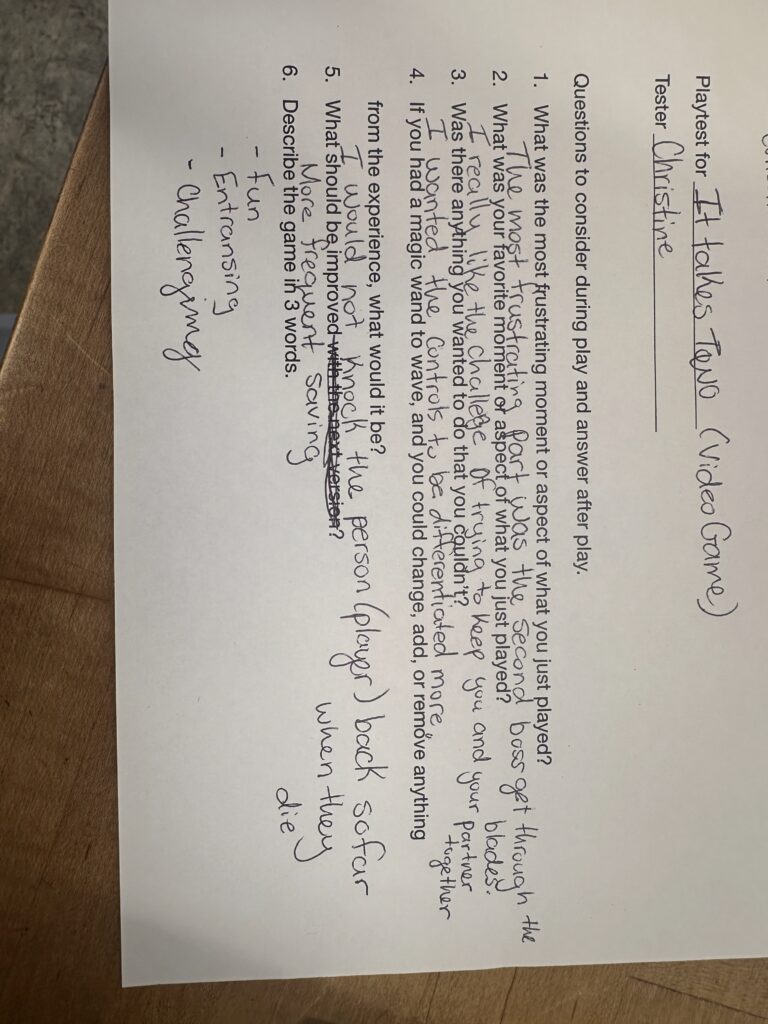 Playtest for It takes Two (Video Game)
Tester Christine
Questions to consider during play and answer after play.
1. What was the most frustrating moment or aspect of what you just played?
The most frustrating part was the second boss get through the
blades.
2. What was your favorite moment or aspect of what you just played?
I really like the challege of trying to keep you and your partner
together
3. Was there anything you wanted to do that you couldn't?
I wanted the controls to be differentiated more.
4. If you had a magic wand to wave, and you could change, add, or remove anything
from the experience, what would it be?
I would not knock the person (player) back so far
when they
die
5. What should be improved with the next version?
More frequent saving
6. Describe the game in 3 words.
- fun
- Entransing
- Challenging